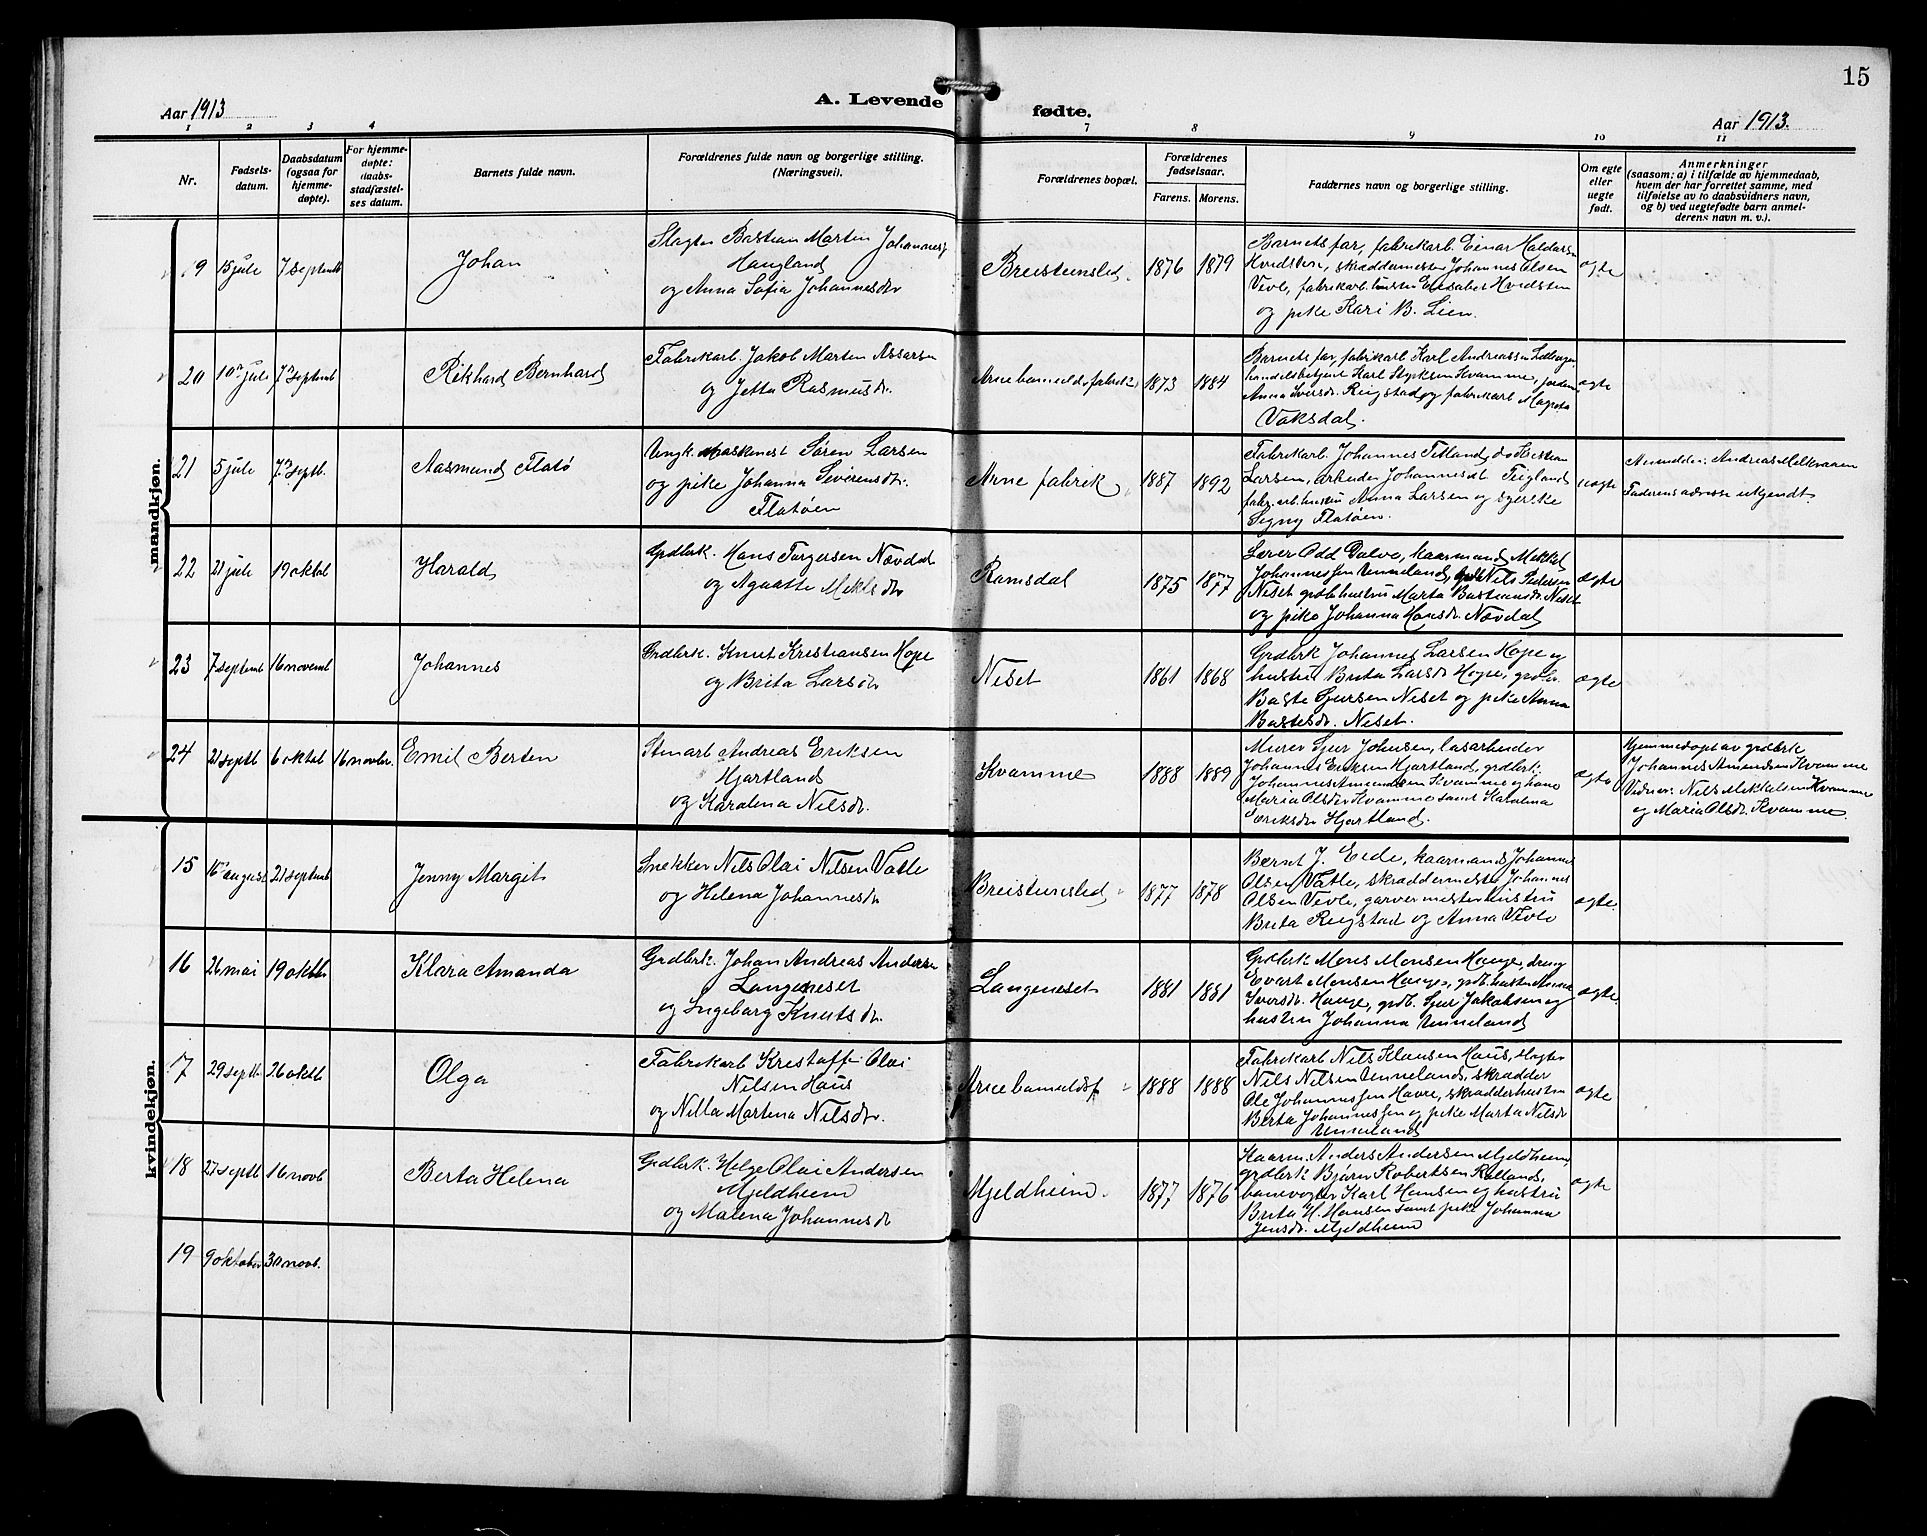 15
Aar 1913
A. Levende
fødte.
Aar 1913.
1 2 3 4
7 8 9 10 11
Nr.
Fødsels-
datum.
Daabsdatum
(ogsaa for
hjemme-
døpte).
For hjemme-
døpte:
daabs-
stadfæstel-
ses datum.
Barnets fulde navn.
Forældrenes fulde navn og borgerlige stilling.
(Næringsvei).
Forældrenes bopæl.
Forældrenes
fødselsaar.
Farens. Morens.
Faddernes navn og borgerlige stilling.
Om egte
eller
uegte
født.
Anmerkninger
(saasom: a) i tilfælde av hjemmedaab,
hvem der har forrettet samme, med
tilføielse av to daabsvidners navn,
og b) ved uegtefødte barn anmel-
derens navn m. v.).
mandkjøn.
19 15 jule 7 septemb
Johan
Slagter Bastian Martin Johannes
Haugland
og Anna Sofia Johannesdr
Breistensled.
1876 1879
Barnets far, fabrikarb. Einar Haldors
Kvidsten, skræddermester Johannes Olsen
Vevle, fabrikarb. hustru Elisabet Hvidsten
og pike Kari B. Lien.
egte
20 10 jule 7 septemb
Rikhard Bernhard
Fabrikarb. Jakob Martin Assarsen
og Jetta Rasmusdr.
Arne bomuldsfabrik
1873 1884
Barnets far, fabrikarb Karl Andreassen
handelsbetjent Karl Kvamme,
Anna Iversdr. Ringstad og fabrikarb Magnta
Vaksdal.
egte
21 5 jule 7 septb.
Aasmund Flatø
Ungk. maskinist Søren Larsen
og pike Johanna Severensdr.
Flatøen
Arne fabrik
1887 1892
Fabrikarb. Johannes Titland, do
Larsen, arbeider Johannes Teigland
fabr. arb. hustru Anna Larsen og syerske
Signy Flatøen.
uegte
Anmelder: Andreas
Faderens adresse ukjendt.
22 21 jule 19 oktob
Harald
Grdbrk. Hans Torgersen Nævdal
og Agatte Mikls dr
Ramsdal
1875 1877
Lærer Odd Dalve, kaarmand Mikkel
Johannessen Unneland, Nils Pedersen
Neset grdb. hustru Marta Bastiansdr. Neset
og pike Johanna Hansdr. Nævdal
egte
23 7 septemb 16 novemb
Johannes
Grdbrk. Knut Kristiansen Hope
og Brita Larsdr
Neset
1861 1868
Grdbrk Johannes Larsen Hope og
hustru Brita Larsdr Hope, grdbr.
Baste Sjursen Neset og pike Anna
Bastesdr. Neset.
egte
24 21 septb 6 oktob 16 novbr.
Emil Berten
Stenarb. Andreas Eriksen
Hjartland
og Karolena Nilsdr.
Kvamme
1888 1889
Murer Sjur Johnsen, løsarbeider
Johannes Eriksen Hjartland, grdbrk.
Johannes Amundsen Kvamme og kone
Maria Olsdr Kvamme samt Karolina
Eriksdr Hjartland.
egte
Hjemmedøpt av grdbrk
Johannes Amundsen Kvamme
Vidner: Nils Mikkelsen Kvamme
og Maria Olsdr. Kvamme.
kvindekjøn.
15 16 august 21 septemb
Jenny Margit
Snekker Nils Olai Nilsen Vatle
og Helena Johannesdr
Breistensled
1877 1878
Bernt J. Eide, kaarmand Johannes
Olsen Vatle, skræddermester Johannes
Olsen Vevle, garvermester hustru
Brita Ringstad og Anna Vevle
egte.
16 26 mai 19 oktbr
Klara Amanda
Grdbrk. Johan Andreas Andersen
Langeneset
og Ingeborg Knuts dr.
Langeneset
1881 1881
Grdbrk Mons Monsen Hauge, dreng
Evart Monsen Hauge, grdb. hustru Anna
Iversdr. Hauge, grdb. Sjur Jakobsen og
hustru Johanna Unneland
egte
17 29 septb 26 oktb
Olga
Fabrikarb Kristoffer Olai
Nilsen Haus
og Nilla Martina Nilsdr.
Arne bomuldsf
1888 1888
Fabrikarb Nils Klausen Haus, slagter
Nils Nilsen Unneland, skrædder
Ole Johannessen Havre, skrædderhustru
Berta Johannessen og pike Marta Nilsdr
Unneland
egte
18 27 septb 16 novb
Berta Helena
Grdbrk. Helge Olai Andersen
Mjeldheim
og Malena Johannesdr
Mjeldheim.
1877 1876
Kaarm. Anders Andersen Mjeldheim,
grdbrk Bjørn Robertsen Rolland,
banevogter Karl Hansen og hustru
Brita H. Hansen samt pike Johanna
Jensdr. Mjeldheim
egte
19 9 oktober 30 novb.